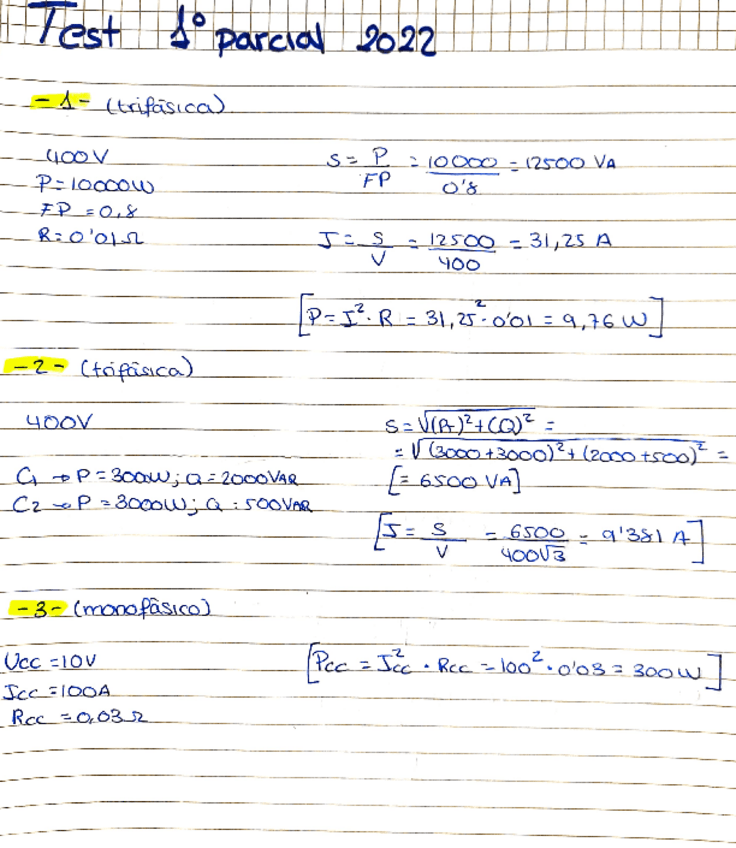 Test 1º parcial 2022
-1- (trifásica)
400V
P=10000W
FP=0,8
R=0'01Ω
S = P/FP = 10000/0'8 = 12500 VA
I = S/V = 12500/400 = 31,25 A
[P = I²·R = 31,25²·0'01 = 9,76 W]
-2- (trifásica)
400V
C1 → P=300W; Q=2000VAR
C2 → P=3000W; Q=500VAR
S = √(P)²+(Q)² =
= √(3000+3000)²+(2000+500)² =
[= 6500 VA]
[I = S/V = 6500/400√3 = 9'381 A]
-3- (monofásico)
Ucc=10V
Icc=100A
Rcc=0,03Ω
[Pcc = Icc²·Rcc = 100²·0'03 = 300W]